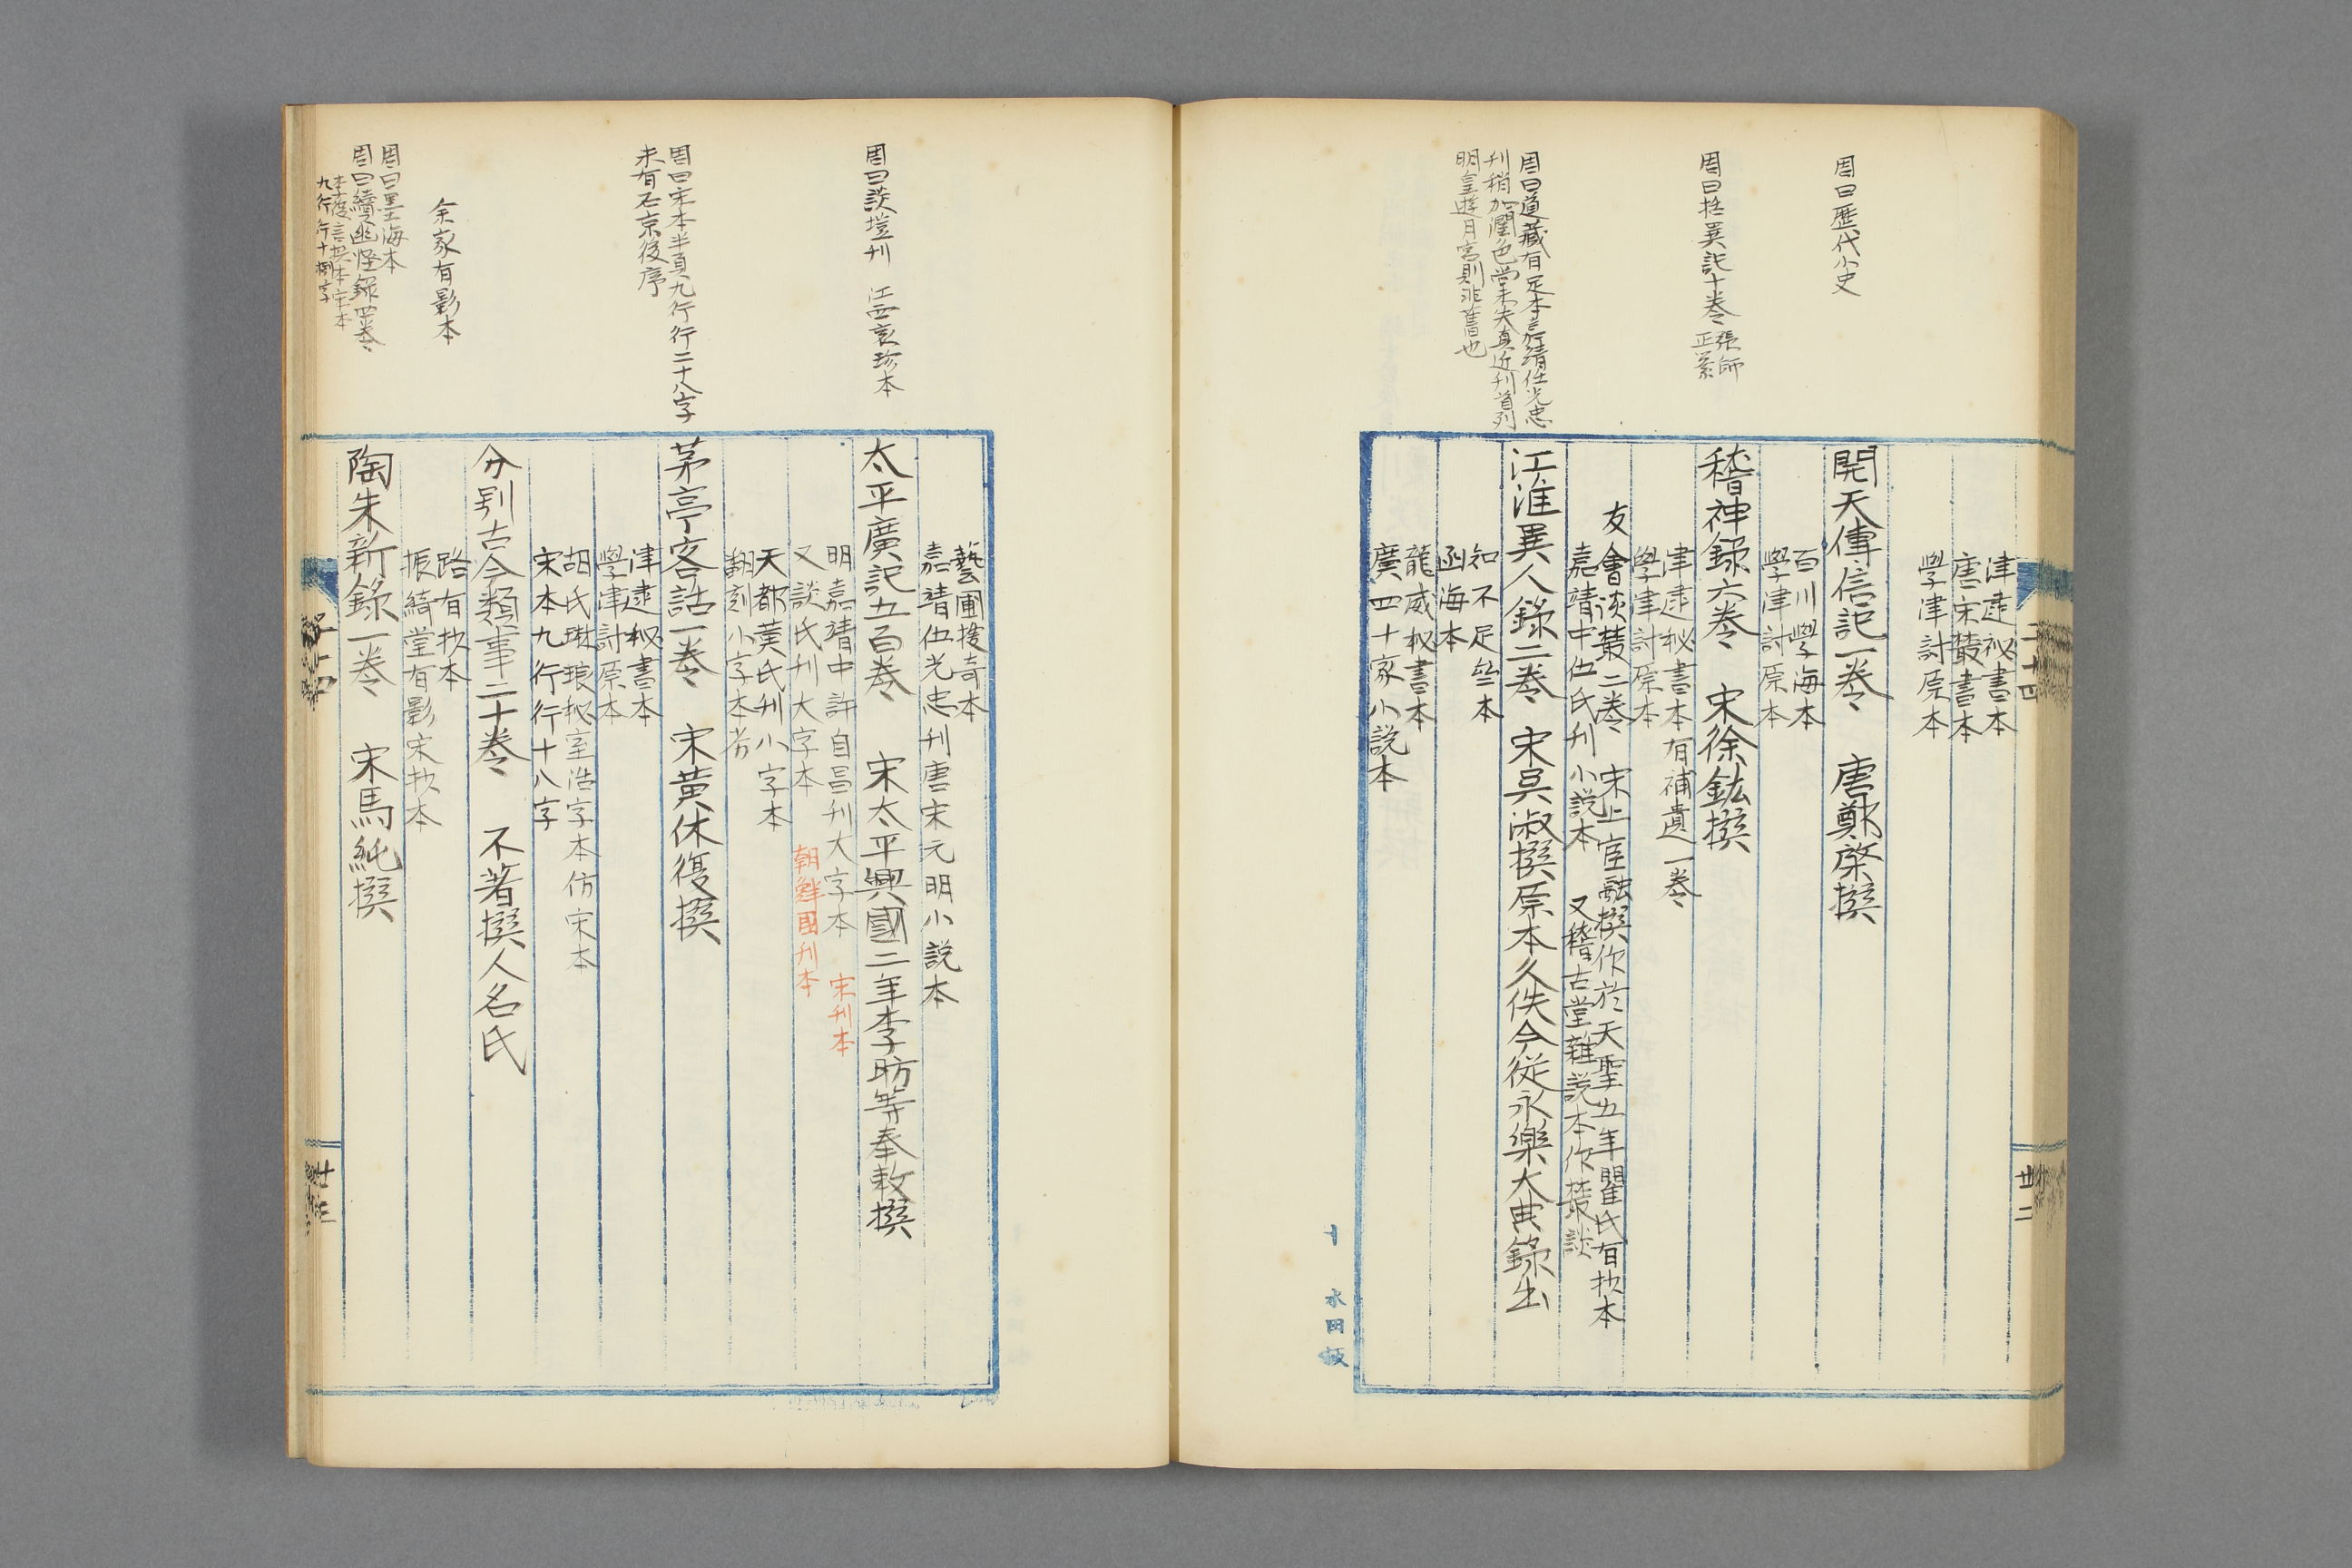 周曰歷代小史
周曰括異記十卷張師
正纂
周曰道藏有足本嘉靖伍光忠
刊稍加潤色尚未失真近刊首列
明皇遊月宮則非舊也
二十四
卅二
津逮祕書本
唐宋叢書本
學津討原本
開天傳信記一卷　唐鄭棨撰
百川學海本
學津討原本
稽神錄六卷　宋徐鉉撰
津逮秘書本有補遺一卷
學津討原本
友會談叢二卷　宋上官融撰作於天聖五年瞿氏有抄本
嘉靖中伍氏刊小說本　又稽古堂雜說本作叢談
江淮異人錄二卷　宋吳淑撰原本久佚今從永樂大典錄出
知不足齋本
函海本
龍威秘書本
廣四十家小說本
十
水田坂
周曰談愷刊　江西裒珍本
周曰宋本半頁九行行二十八字
未有石京後序
余家有影本
周曰墨海本
周曰續幽怪錄四卷
宋本
九行行十捌字
藝圃搜奇本
嘉靖伍光忠刊唐宋元明小說本
太平廣記五百卷　宋太平興國二年李昉等奉敕撰
明嘉靖中許自昌刊大字本　宋刊本
又談氏刊大字本　朝鮮國刊本
天都黃氏刊小字本
翻刻小字本劣
茅亭客話一卷　宋黃休復撰
津逮秘書本
學津討原本
胡氏琳琅秘室活字本仿宋本
宋本九行行十八字
分別古今類事二十卷　不著撰人名氏
路有抄本
振綺堂有影宋抄本
陶朱新錄一卷　宋馬純撰